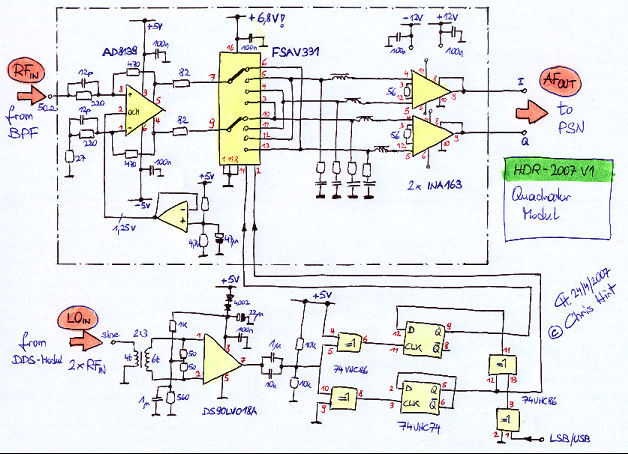 +5V
100n
+6,8V!
-12V
+12V
100n
100n
AD8138
FSAV331
100n
RF IN
12p
470
82
220
50Ω
from
BPF
OCM
12p
220
27
470
82
100n
-5V
+5V
1,25V
4,7k
47µ
56
56
2x INA163
AF OUT
I
Q
to
PSN
HDR-2007 V1
Quadratur
Modul
24/4/2007
© Chris Hirt
LO IN
from
DDS-Modul
2x RF IN
2:3
4t
6t
1k
50
50
560
1n
+5V
4001
22µ
100n
DS90LV018A
1µ
10n
+5V
10k
10k
=1
74VHC86
=1
D
Q
CLK
Q
D
Q
CLK
Q
74VHC74
=1
74VHC86
=1
LSB/USB